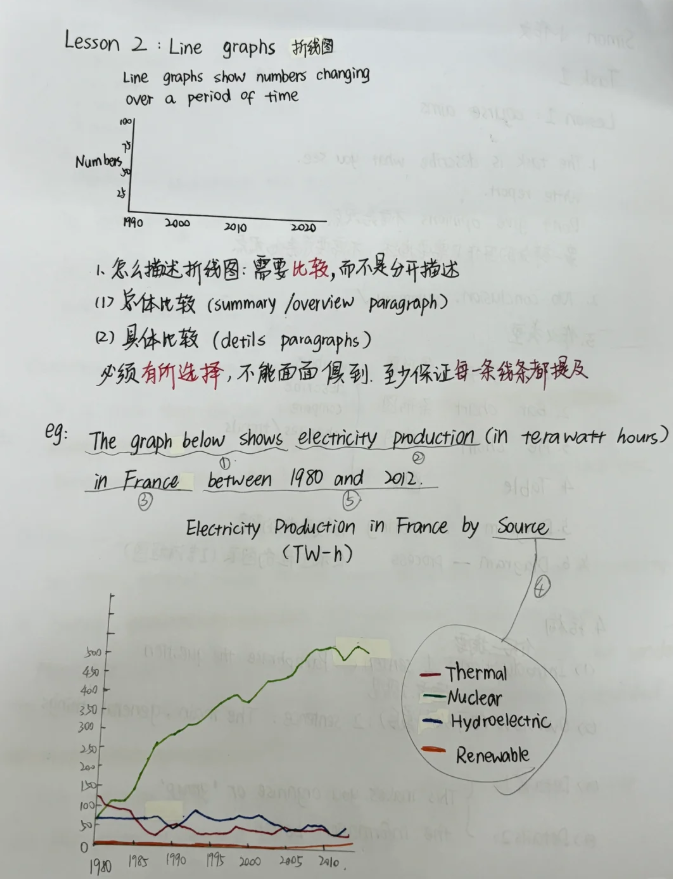 Lesson 2 : Line graphs 折线图
Line graphs show numbers changing
over a period of time
100
75
Numbers
50
25
1990 2000 2010 2020
1、怎么描述折线图：需要比较，而不是分开描述
(1) 总体比较 (summary /overview paragraph)
(2) 具体比较 (detils paragraphs)
必须有所选择，不能面面俱到. 至少保证每一条线条都提及
eg: The graph below shows electricity production (in terawatt hours)
① ②
in France between 1980 and 2012.
③ ⑤
Electricity Production in France by Source
(TW-h)
④
500
450
400
350
300
250
200
150
100
50
0
1980 1985 1990 1995 2000 2005 2010
Thermal
Nuclear
Hydroelectric
Renewable